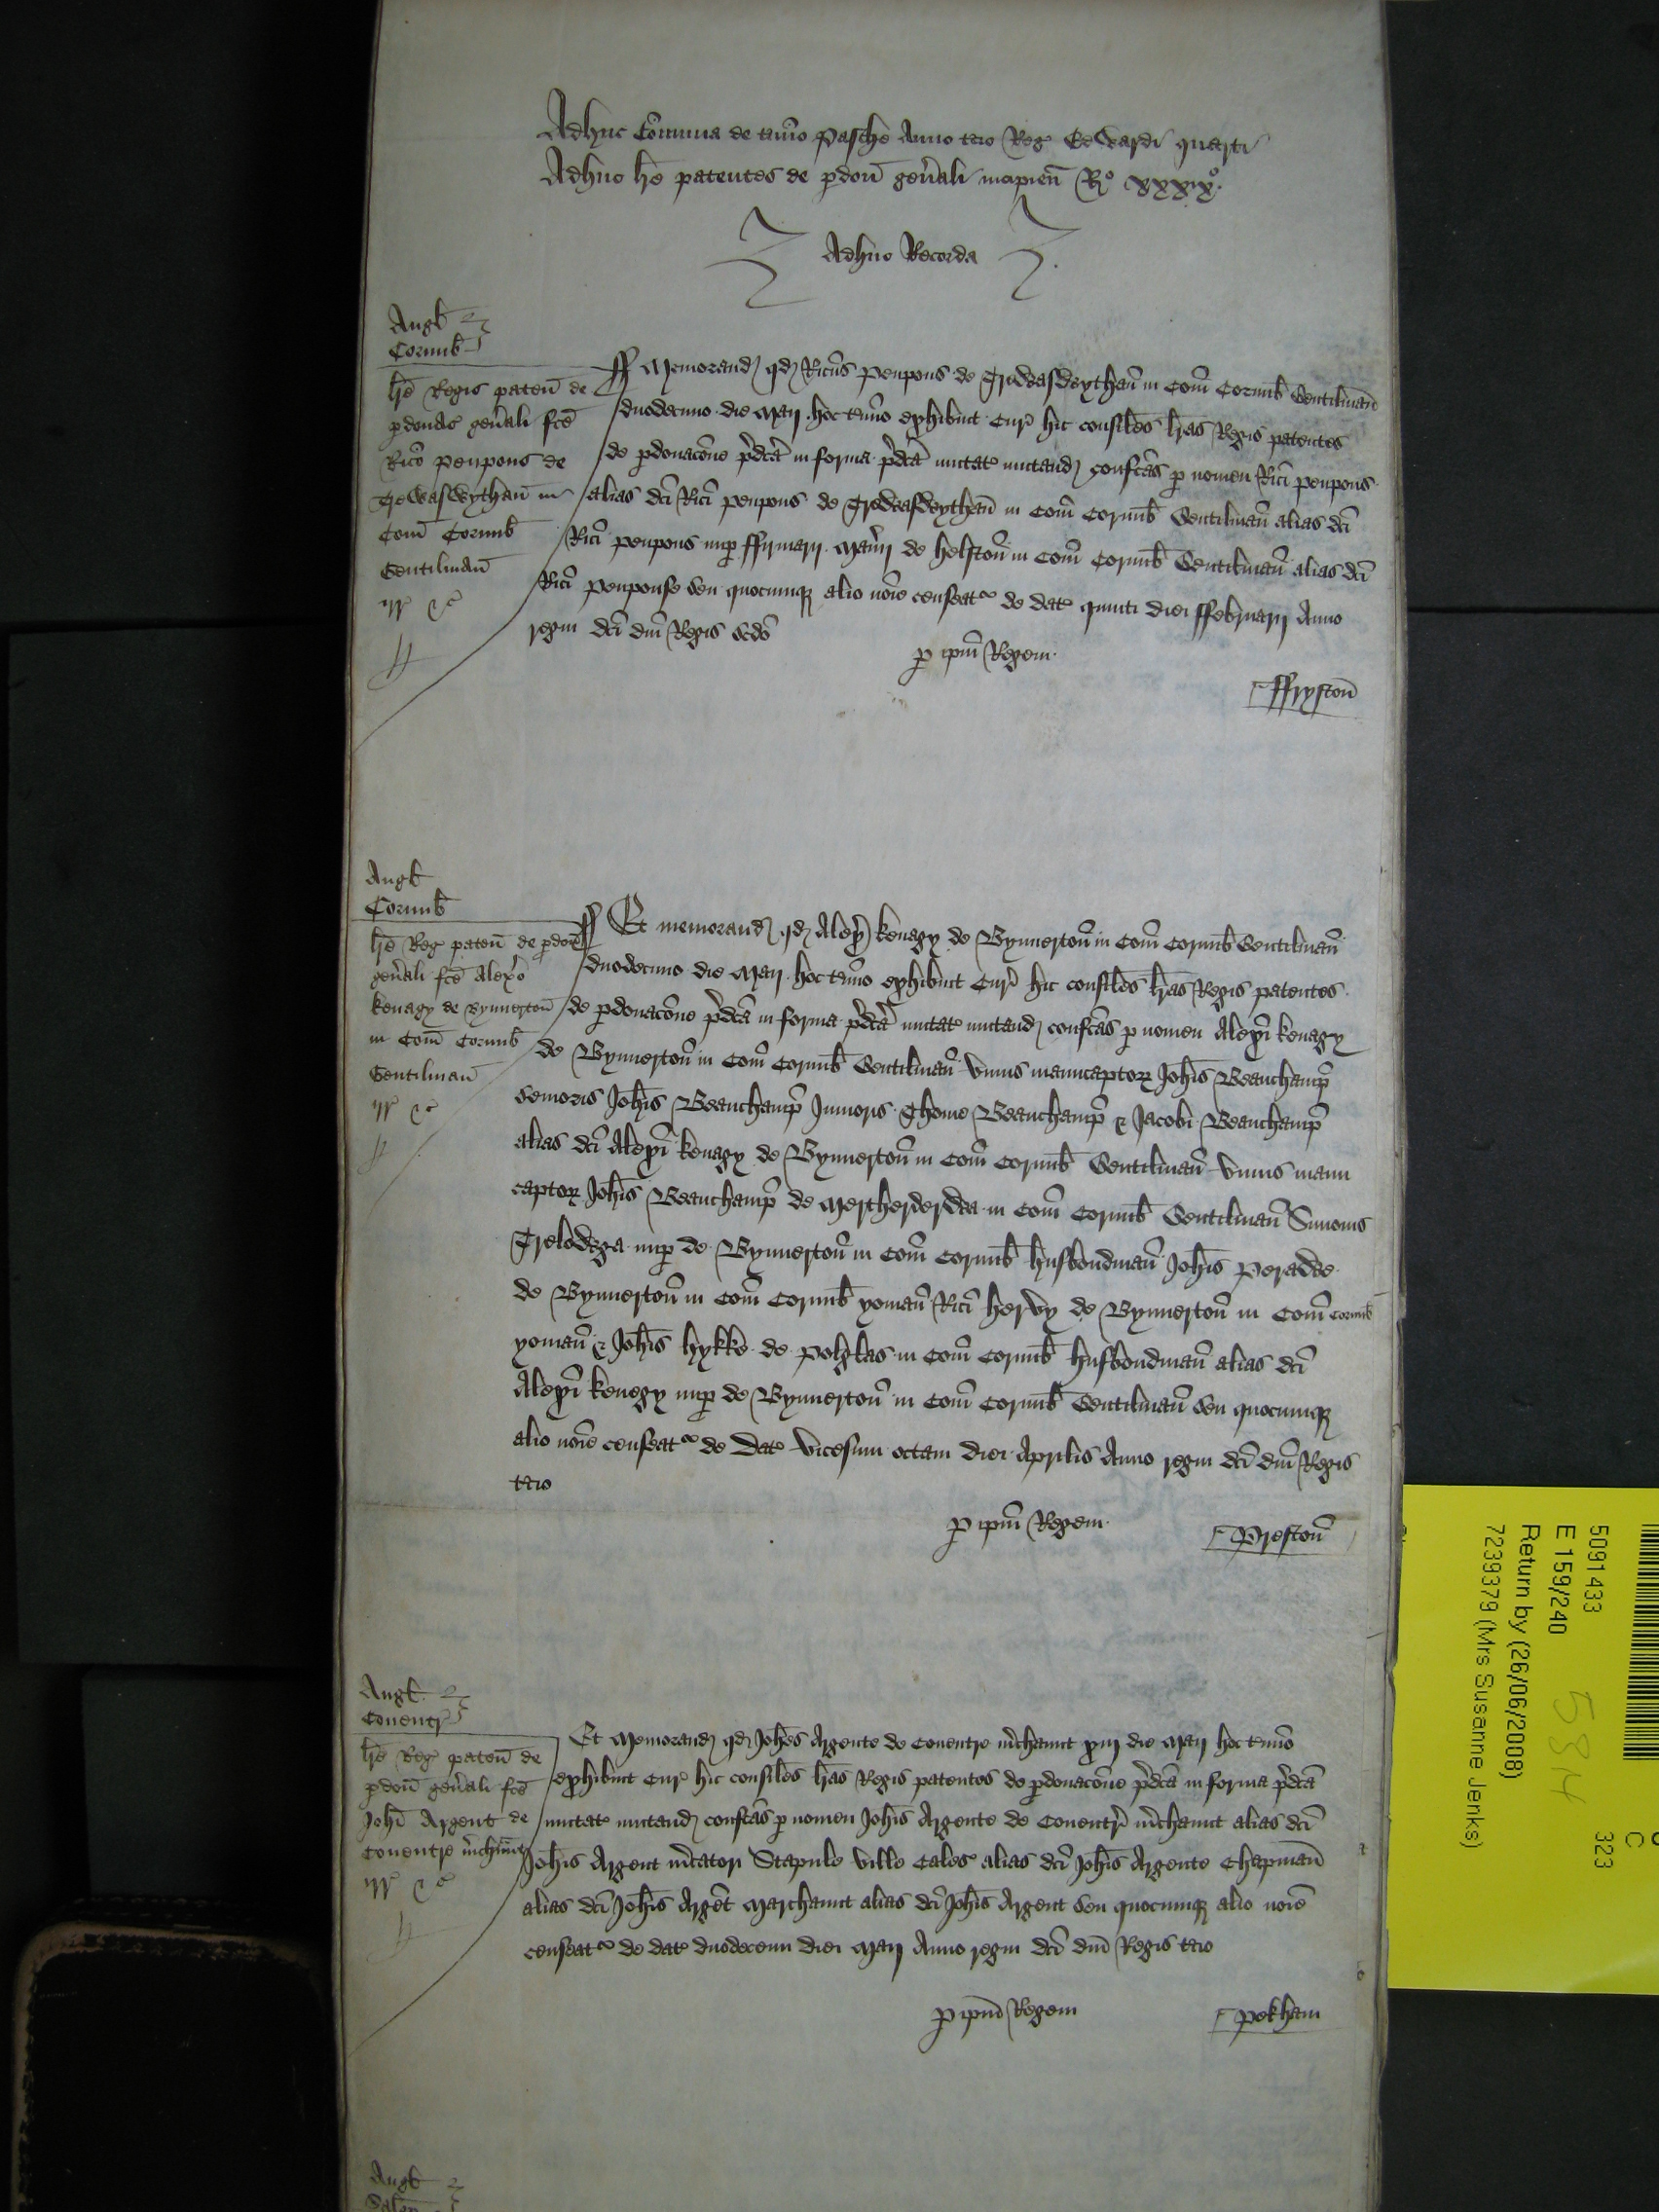 Adhuc Cōmuna de tmīo Pasche Anno tcio Reg Edwardi quarti
Adhuc lrē patentes de pdoñ gen̄ali incipieñ Rº xxxixº
Adhuc Recorda
Angl
Cornub
lrē Regis pateñ de
pdonac̄ gen̄ali fcē
Ricō Penpons de
Trewaswythañ in
Com̄ Cornub
Gentilmañ
irr &c
Memorand qd Ricūs Penpons de Trewaswythañ in Com̄ Cornub Gentilmañ
duodecimo die Maij hoc tmīo exhibuit Cur hic consilēs lrās Regis patentes
de pdonacōne pdcā in forma pdcā mutat mutand confcās p nomen Ricī Penpons
alias dcī Ricī Penpons de Trewaswythañ in Com̄ Cornub Gentilmañ alias dcī
Ricī Penpons nup ffirmarij Man̄ij de Helstoñ in Com̄ Cornub Gentilmañ alias dcī
Ricī Penponse seu quocumq alio noīe censeat de dat quinti diei ffebruarij Anno
regni dcī dnī Regis scdō
p ipm̄ Regem
ffrystoñ
Angl
Cornub
lrē Reg pateñ de pdonē
gen̄ali fcē Alexrō
Kenagy de Bynnertoñ
in Com̄ Cornub
Gentilmañ
irr &c
Et memorand qd Alexr Kenagy de Bynnertoñ in Com̄ Cornub Gentilmañ
duodecimo die Maij hoc tmīo exhibuit Cur hic consilēs lrās Regis patentes
de pdonacōne pdcā in forma pdcā mutat mutand confcās p nomen Alexrī Kenagy
de Bynnertoñ in Com̄ Cornub Gentilmañ unius manucaptor Johīs Beauchamp
Senioris Johīs Beauchamp Junioris Thome Beauchamp & Jacobi Beauchamp
alias dcī Alexrī Kenagy de Bynnertoñ in Com̄ Cornub Gentilmañ unius manu
captor Johīs Beauchamp de Mertherderwa in Com̄ Cornub Gentilmañ Simonis
Trelewga nup de Bynnertoñ in Com̄ Cornub husbondmañ Johīs Perawe
de Bynnertoñ in Com̄ Cornub yomañ Ricī Hervy de Bynnertoñ in Com̄ Cornub
yomañ & Johīs Hykke de Polglas in Com̄ Cornub husbondmañ alias dcī
Alexrī Kenegy nup de Bynnertoñ in Com̄ Cornub Gentilmañ seu quocumq
alio noīe censeat de Dat vicesimi octavi diei Aprilis Anno regni dcī dnī Regis
tcio
p ipm̄ Regem
Prestoñ
Angl
Coventr
lrē Reg pateñ de
pdoñ gen̄ali fcē
Johī Argent de
Coventre mchaunt
irr &c
Et Memorand qd Johēs Argente de Coventre mchaunt xiij die Maij hoc tmīo
exhibuit Cur hic consilēs lrās Regis patentes de pdonacōne pdcā in forma pdcā
mutat mutand confcās p nomen Johīs Argente de Coventr mchaunt alias dcī
Johīs Argent mcatori Stapule ville Cales alias dcī Johīs Argente Chapmañ
alias dcī Johīs Argēt Marchaunt alias dcī Johīs Argent seu quocumq alio noīe
censeat de dat duodecimi diei Maij Anno regni dcī dnī Regis tcio
p ipm̄ Regem
Pekham
Angl
5091433
E 159/240
Return by (26/06/2008)
7239379 (Mrs Susanne Jenks)
323
C